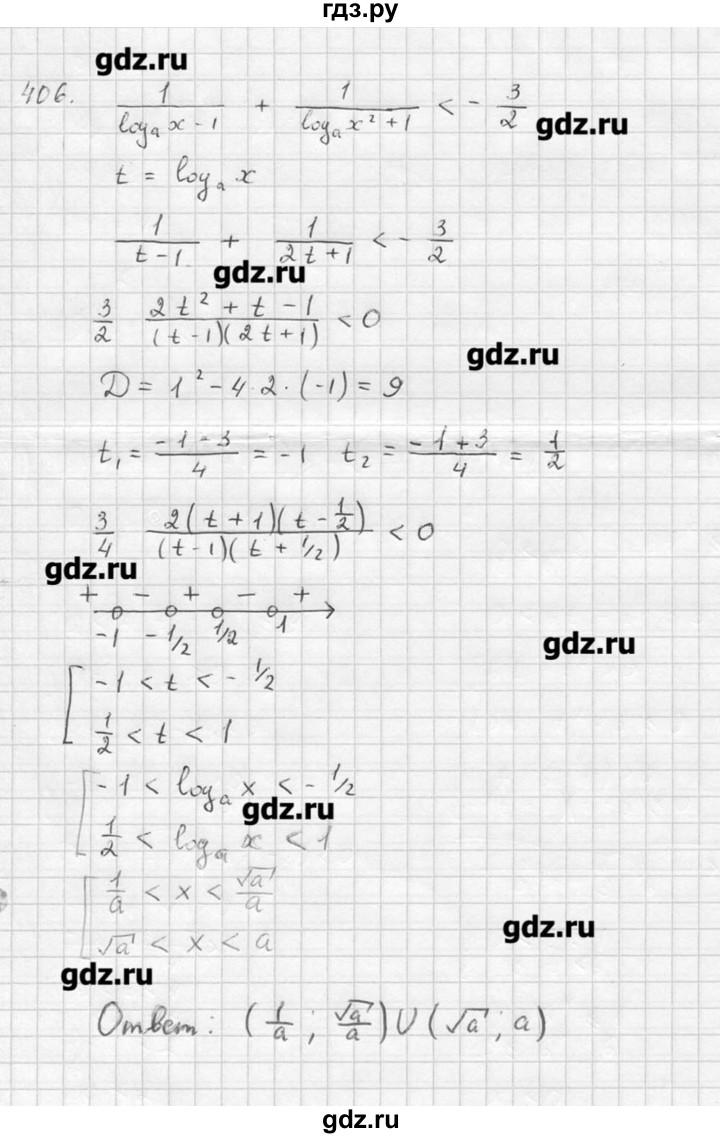 гдз.ру
gdz.ru
406. 1/(log_a x - 1) + 1/(log_a x² + 1) < - 3/2
gdz.ru
t = log_a x
1/(t - 1) + 1/(2t + 1) < - 3/2
gdz.ru
3/2 (2t² + t - 1)/((t - 1)(2t + 1)) < 0
gdz.ru
D = 1² - 4·2·(-1) = 9
t₁ = (-1 - 3)/4 = -1 t₂ = (-1 + 3)/4 = 1/2
3/4 2(t + 1)(t - 1/2)/((t - 1)(t + 1/2)) < 0
gdz.ru
+ - + - +
-1 -1/2 1/2 1
gdz.ru
[ -1 < t < - 1/2
1/2 < t < 1
[ -1 < log_a x < - 1/2
gdz.ru
1/2 < log_a x < 1
[ 1/a < x < √a/a
gdz.ru
√a < x < a
gdz.ru
Ответ: (1/a ; √a/a) U (√a ; a)
gdz.ru